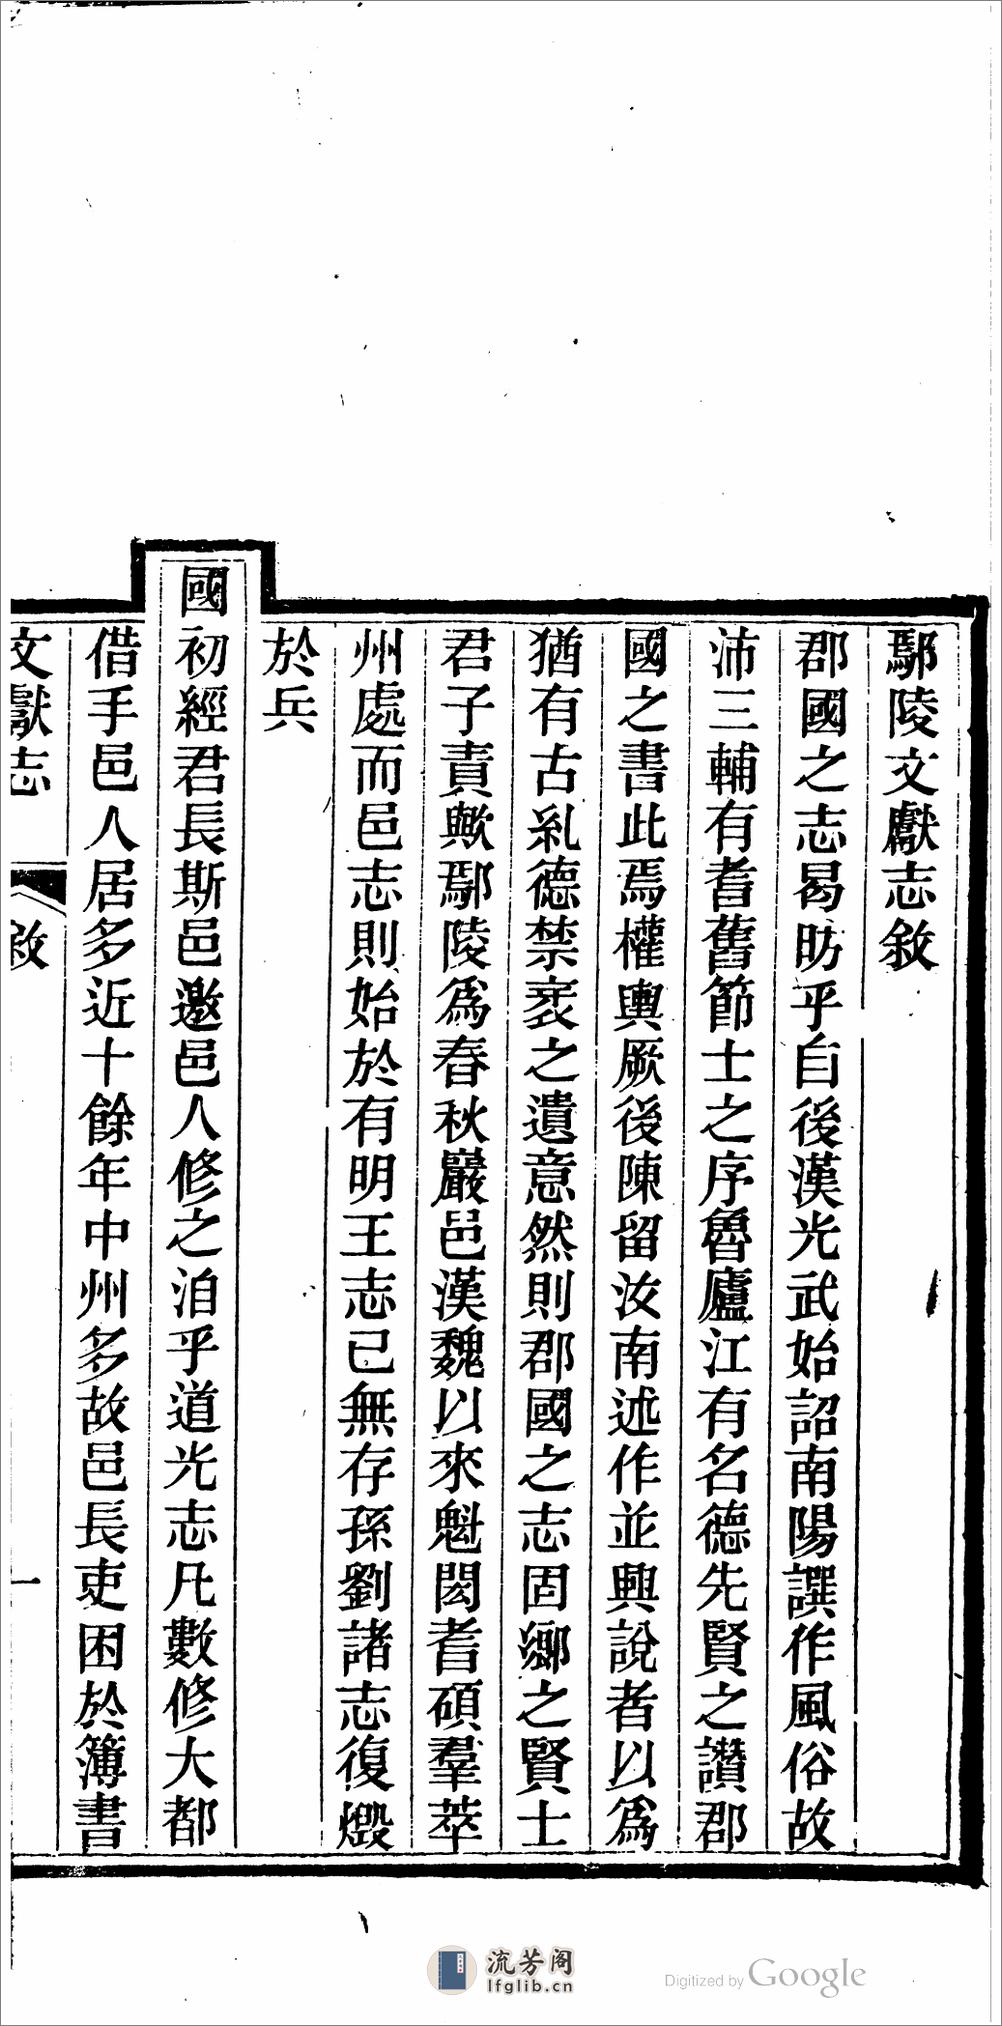 鄢陵文獻志敘
郡國之志曷昉乎自後漢光武始詔南陽譔作風俗故
沛三輔有耆舊節士之序魯廬江有名德先賢之讚郡
國之書此焉權輿厥後陳留汝南述作並興說者以爲
猶有古糺德禁衺之遺意然則郡國之志固鄉之賢士
君子責歟鄢陵爲春秋巖邑漢魏以來魁閎耆碩羣萃
州處而邑志則始於有明王志已無存孫劉諸志復燬
於兵
國初經君長斯邑邀邑人修之洎乎道光志凡數修大都
借手邑人居多近十餘年中州多故邑長吏困於簿書
文獻志 敘 一
流芳阁
lfglib.cn
Digitized by Google